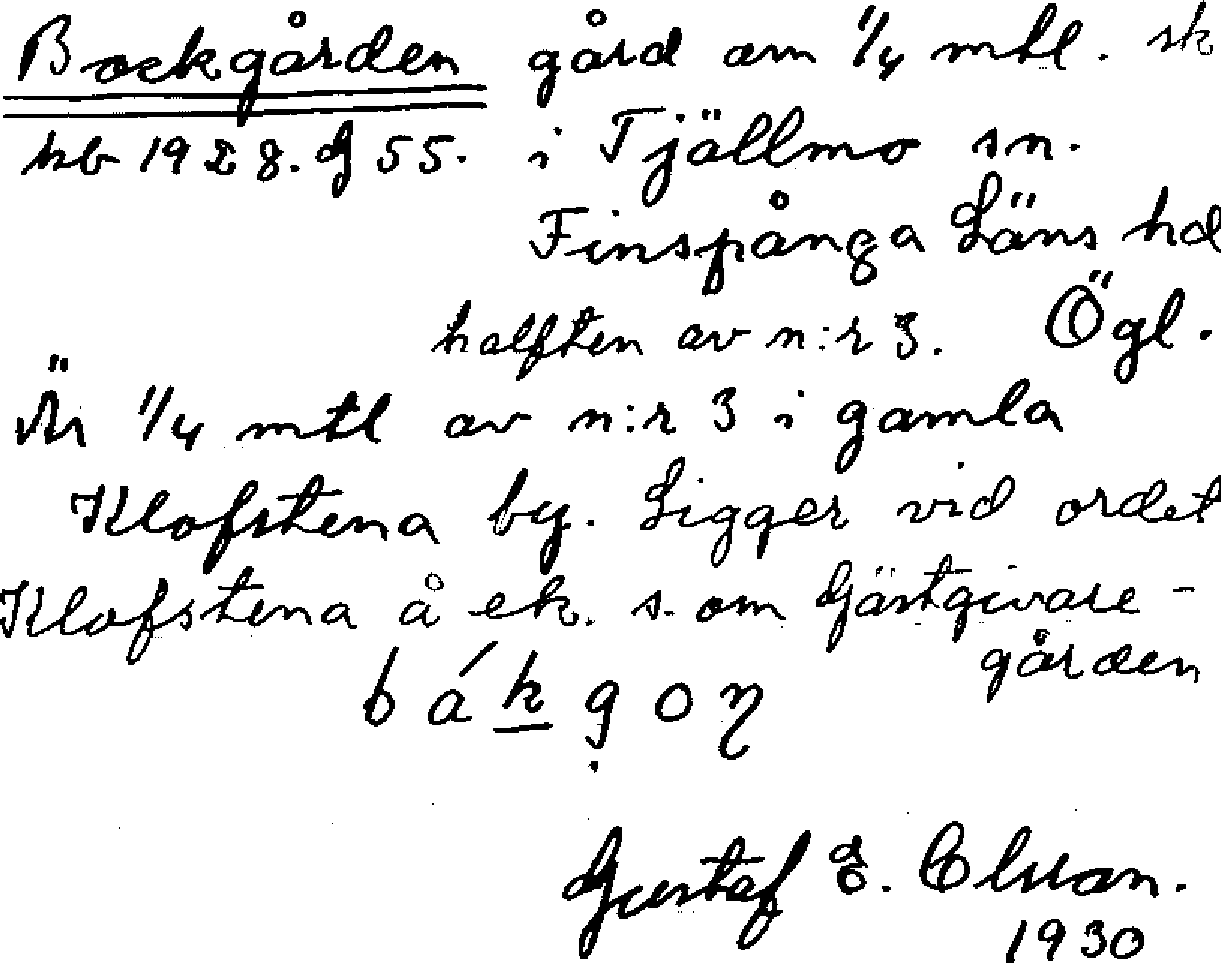 Backgården gård om 1/4 mtl. sk
kb 1928. G 55. i Tjällmo sn.
Finspånga Läns hd
halften av n:r 3. Ögl.
Är 1/4 mtl av n:r 3 i gamla
Klofstena by. Ligger vid ordet
Klofstena å ek. s. om Gästgivare-
gården
b á k g o ŋ
Gustaf E.
1930